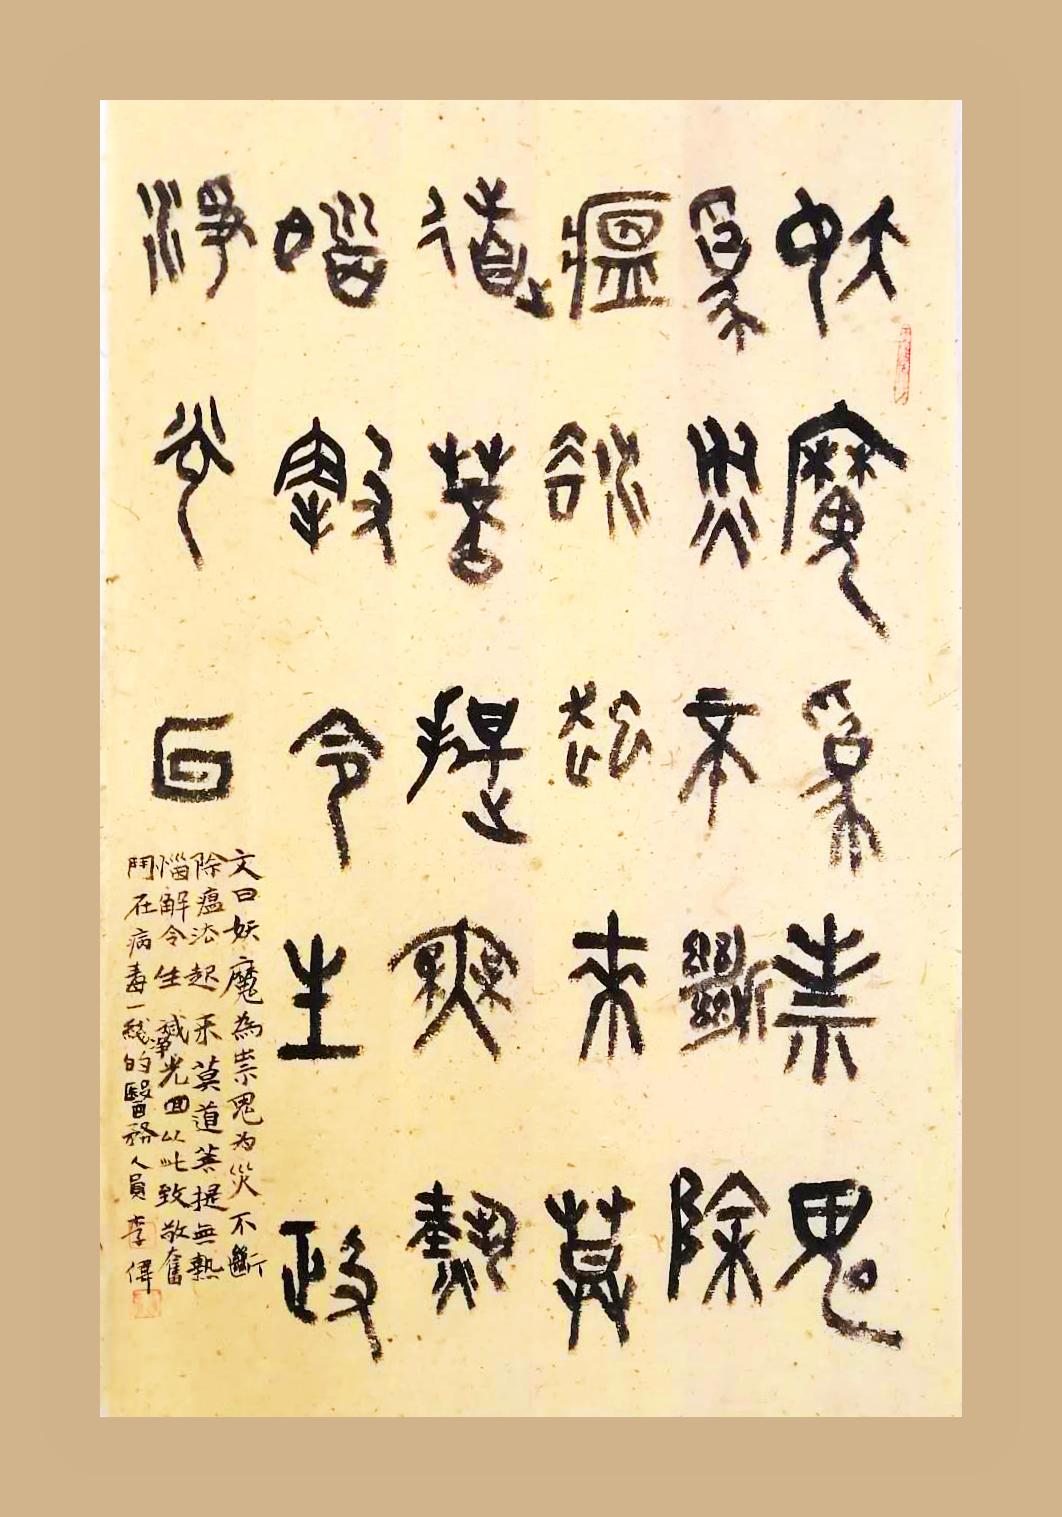 妖魔為祟鬼
為災不斷除
瘟法起來莫
道菩提無熱
惱令生
淨光回
文曰妖魔為祟鬼为災不斷
除瘟法起來莫道菩提無熱
惱解令生光回以此致敬奮
鬥在病毒一綫的醫務人員 李偉